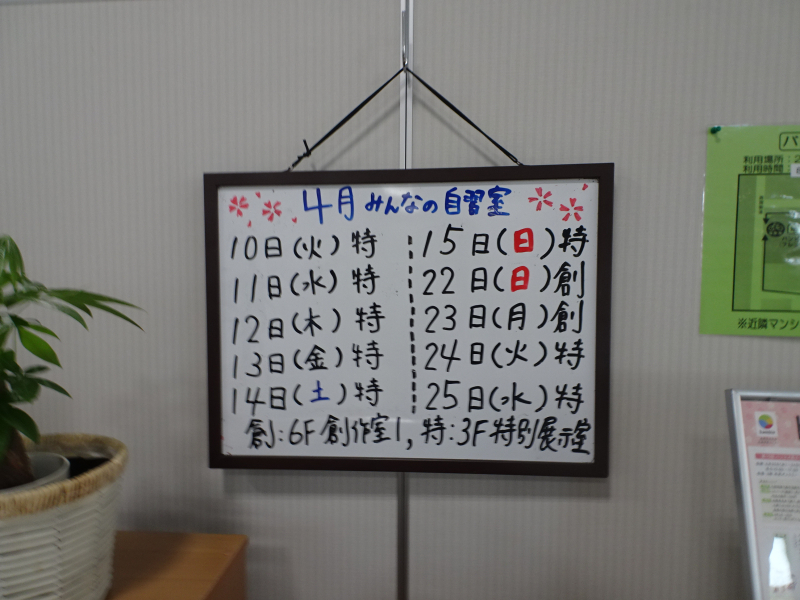 4月 みんなの自習室
10日(火)特
11日(水)特
12日(木)特
13日(金)特
14日(土)特
15日(日)特
22日(日)創
23日(月)創
24日(火)特
25日(水)特
創:6F創作室1, 特:3F特別展示室
利用場所:2
利用時間:
※近隣マンシ